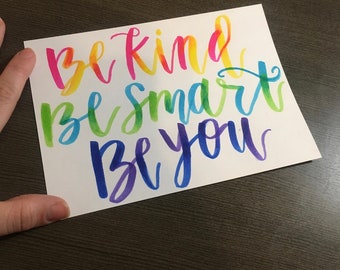 Be Kind
Be Smart
Be you